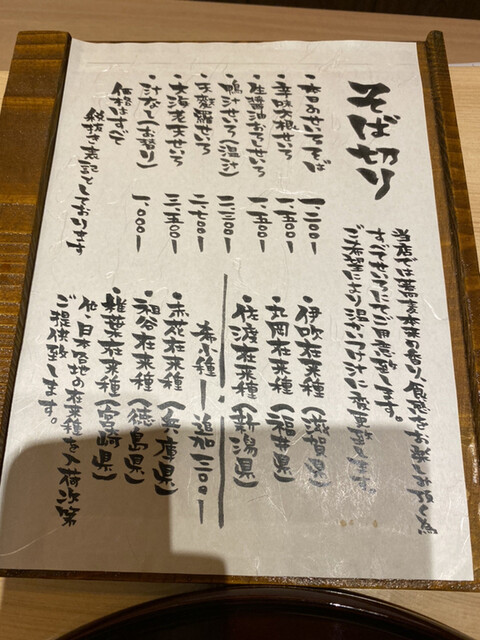 そば切り
当店では蕎麦本来の香り、食感をお楽しみ頂く為
すべてせいろにてご用意致します。
ご希望により温かいツケ汁に変更致します。
・本日のせいろそば 一.二〇〇ー
・辛味大根せいろ 一.五〇〇ー
・生醤油おろしせいろ 一.五〇〇ー
・鴨汁せいろ(温汁)
・天麩羅せいろ 二.七〇〇ー
・大海老天せいろ 三.五〇〇ー
・汁なし(お替り) 一.〇〇〇ー
価格はすべて
税抜き表記としております
・伊吹在来種(滋賀県)
・丸岡在来種(福井県)
・佐渡在来種(新潟県)
希少種ー追加
・赤花在来種(兵庫県)
・祖谷在来種(徳島県)
・椎葉在来種(宮崎県)
他、日本各地の在来種を入荷次第
ご提供致します。